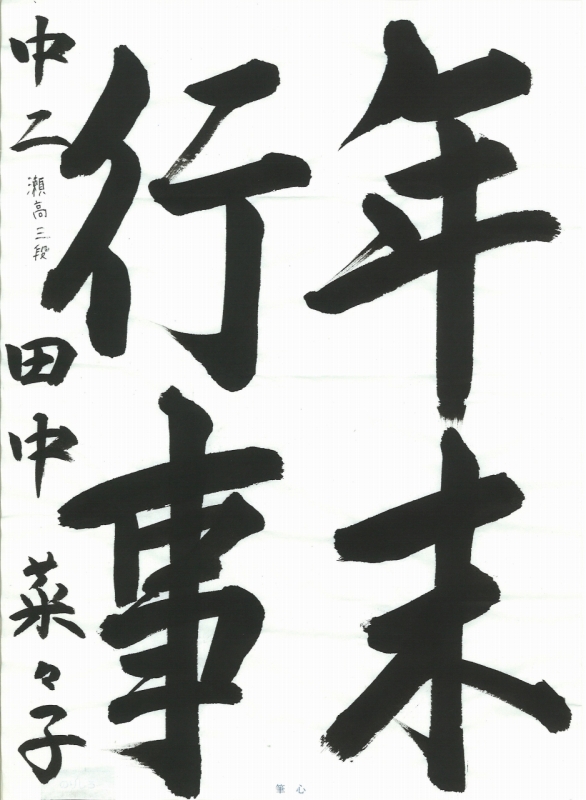 年末
行事
中二 瀬高三段 田中 菜々子
筆心